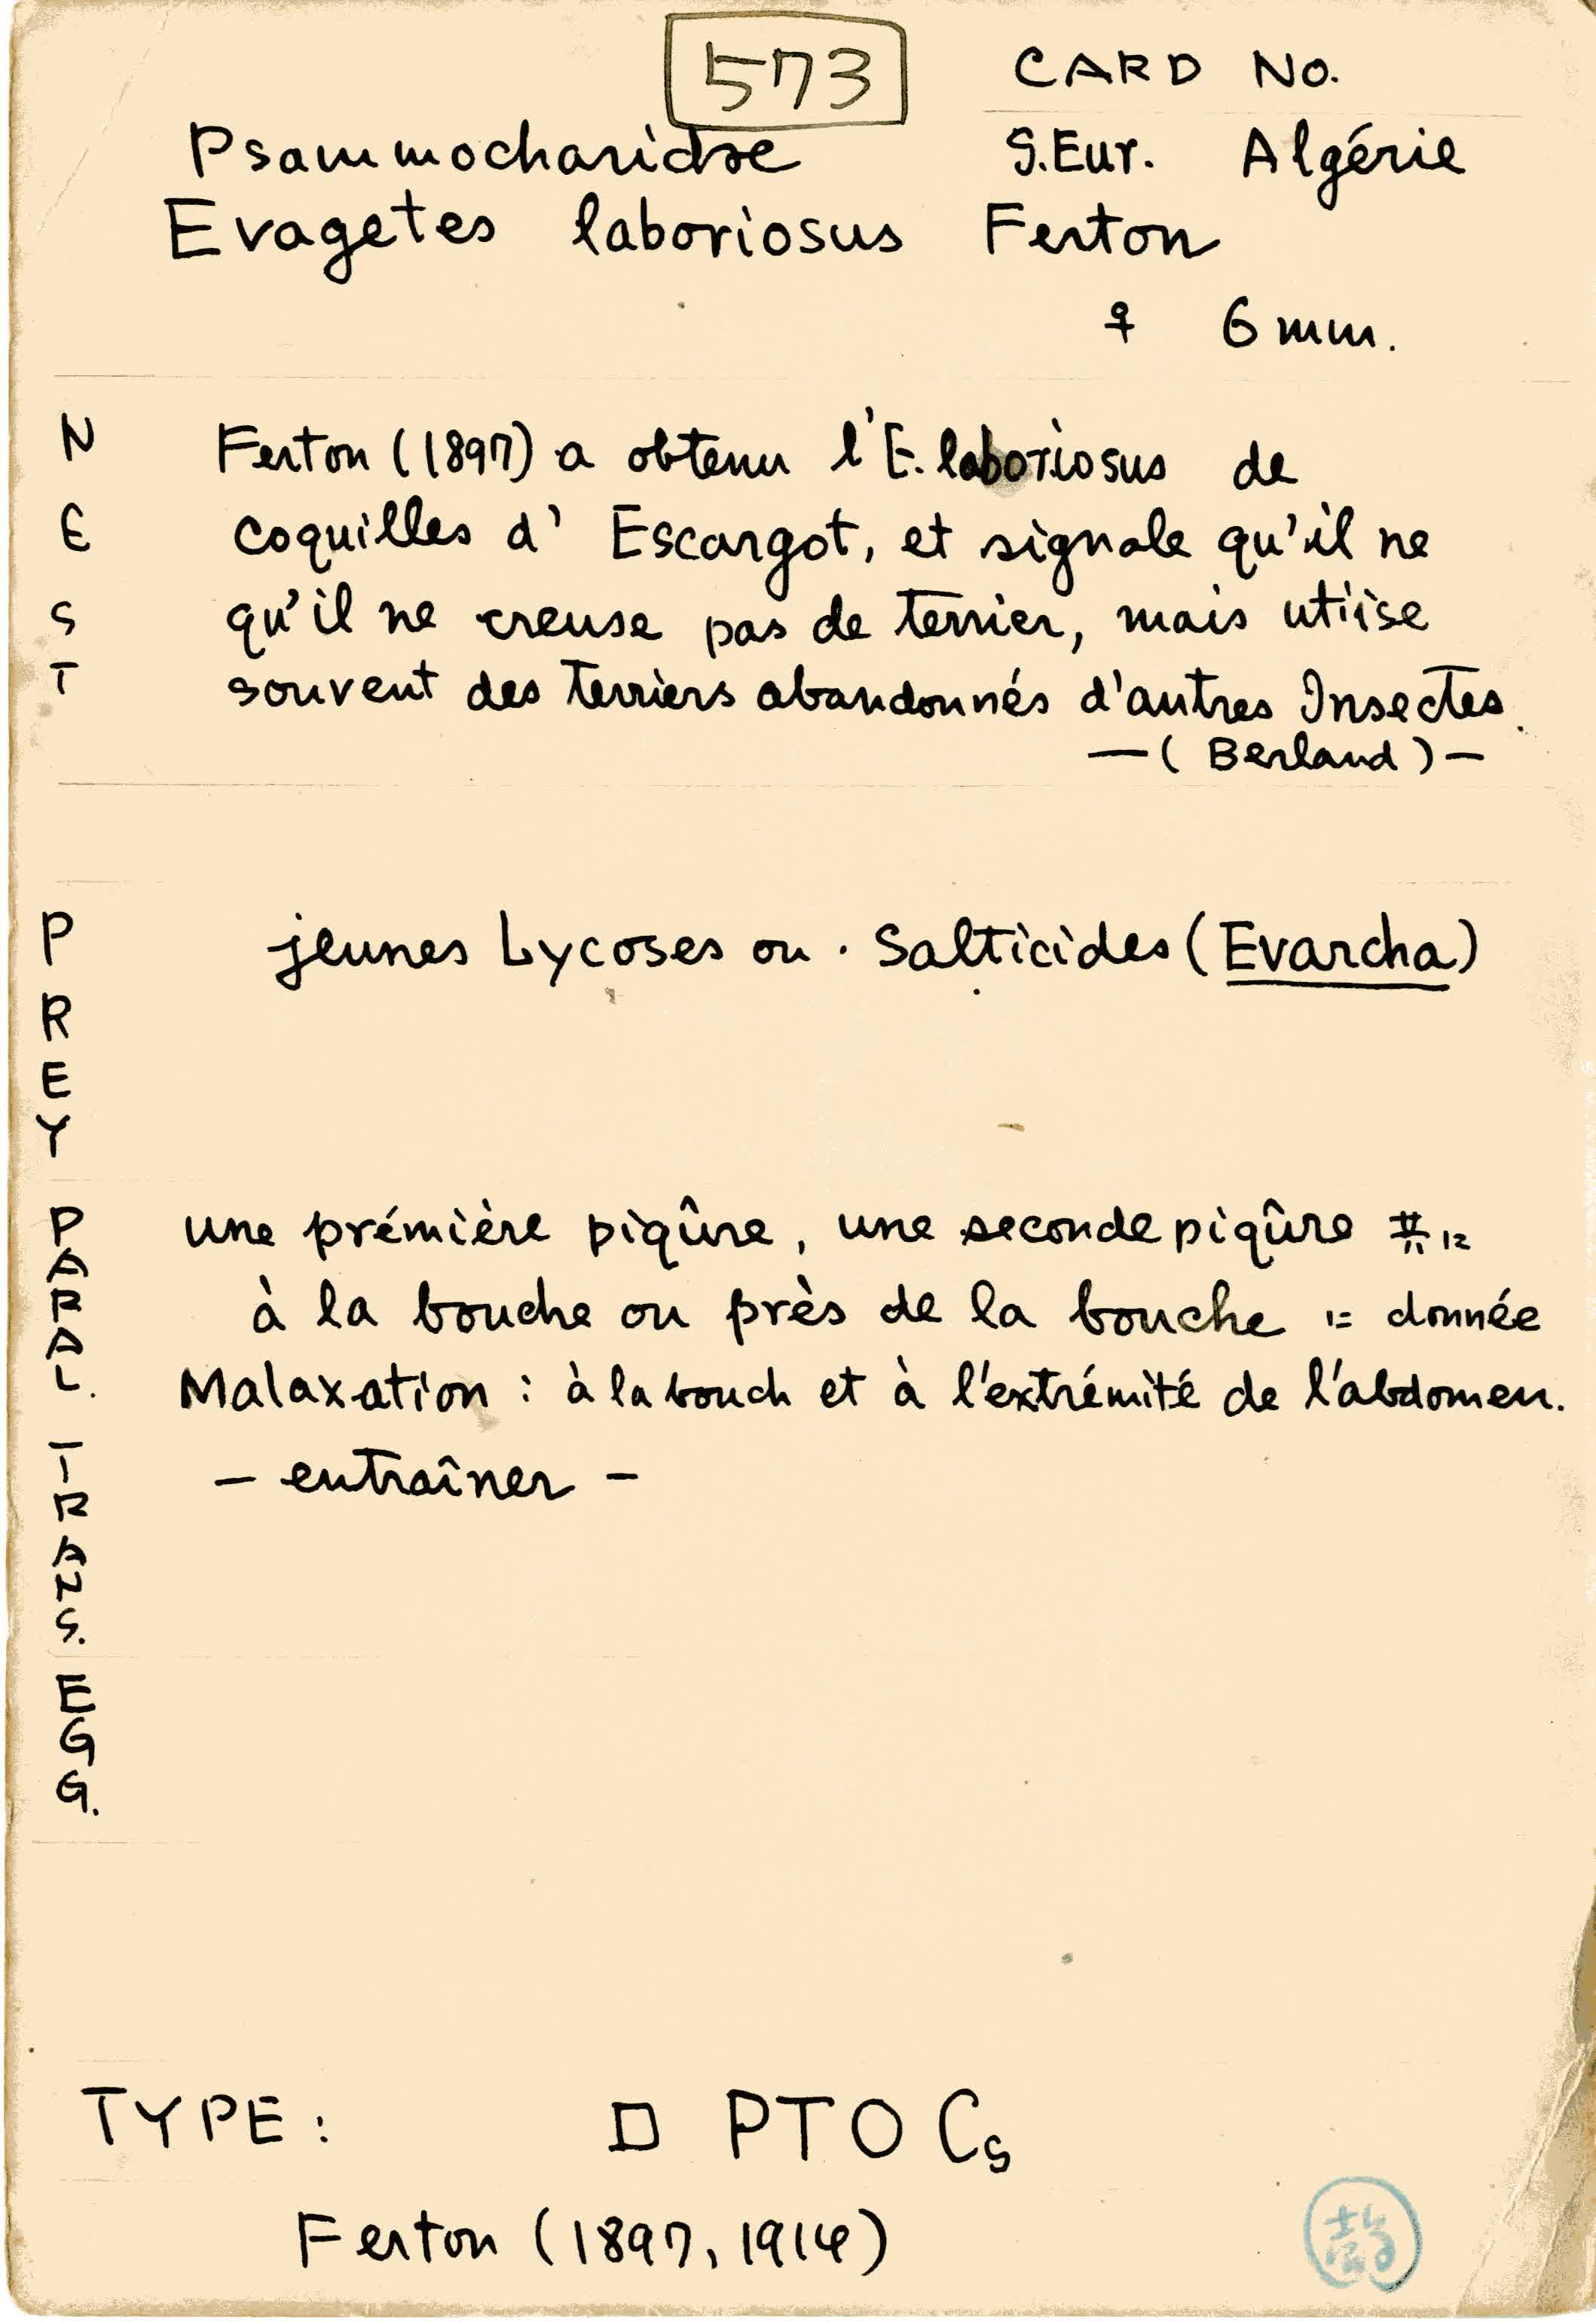 573
CARD No.
Psammocharidae S.Eur. Algérie
Evagetes laboriosus Ferton
♀ 6 mm.
NEST
Ferton (1897) a obtenu l'E. laboriosus de
coquilles d' Escargot, et signale qu'il ne
qu'il ne creuse pas de terrier, mais utiise
souvent des terriers abandonnés d'autres Insectes.
—( Berland )—
PREY
jeunes Lycoses ou . Salticides (Evarcha)
PARAL. TRANS. EGG.
une prémière piqûre, une seconde piqûre #に
à la bouche ou près de la bouche に donnée
Malaxation : à la bouch et à l'extrémité de l'abdomen.
– entraîner –
TYPE: ロ PTOCs
Ferton (1897, 1914)